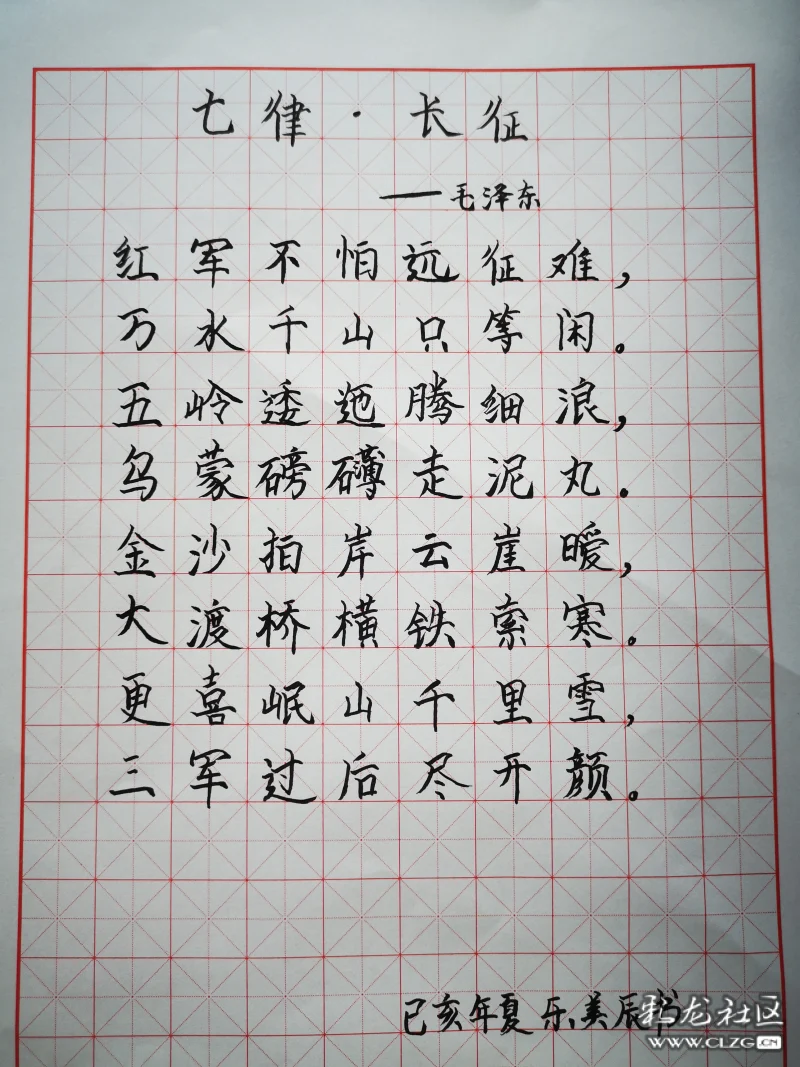 七律·长征
——毛泽东
红军不怕远征难，
万水千山只等闲。
五岭逶迤腾细浪，
乌蒙磅礴走泥丸．
金沙拍岸云崖暖，
大渡桥横铁索寒。
更喜岷山千里雪，
三军过后尽开颜。
己亥年夏 乐美辰书
龙社区
WWW.CLZG.CN